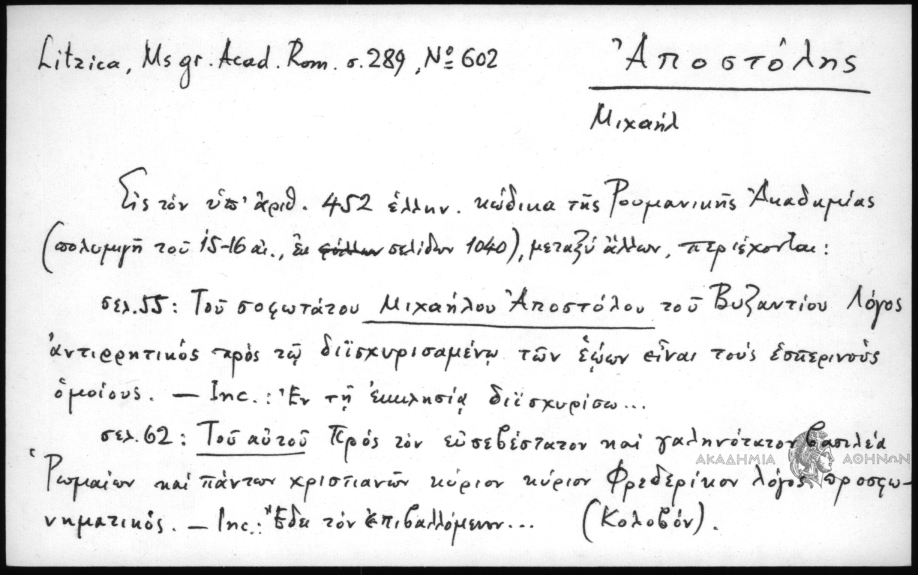 Litzica, Ms gr. Acad. Rom. σ. 289, Nο 602
Ἀποστόλης
Μιχαήλ
Εἰς τὸν ὑπ' ἀριθ. 452 ἑλλην. κώδικα τῆς Ρουμανικῆς Ἀκαδημίας
(πολυμιγῆ τοῦ 15-16 αἰ., ἐκ φύλλων σελίδων 1040), μεταξὺ ἄλλων, περιέχονται:
σελ. 55: Τοῦ σοφωτάτου Μιχαήλου Ἀποστόλου τοῦ Βυζαντίου Λόγος
ἀντιρρητικὸς πρὸς τῷ διϊσχυρισαμένῳ τῶν ἑῴων εἶναι τοὺς ἑσπερινοὺς
ὁμοίους. — Inc.: Ἐν τῇ ἐκκλησίᾳ διϊσχυρίσω...
σελ. 62: Τοῦ αὐτοῦ Πρὸς τὸν εὐσεβέστατον καὶ γαληνότατον βασιλέα
Ῥωμαίων καὶ πάντων χριστιανῶν κύριον κύριον Φρεδερῖκον λόγος προσφω-
νηματικός. — Inc.: Ἔδει τὸν ἐπιβαλλόμενον... (Κολοβόν).
ΑΚΑΔΗΜΙΑ ΑΘΗΝΩΝ